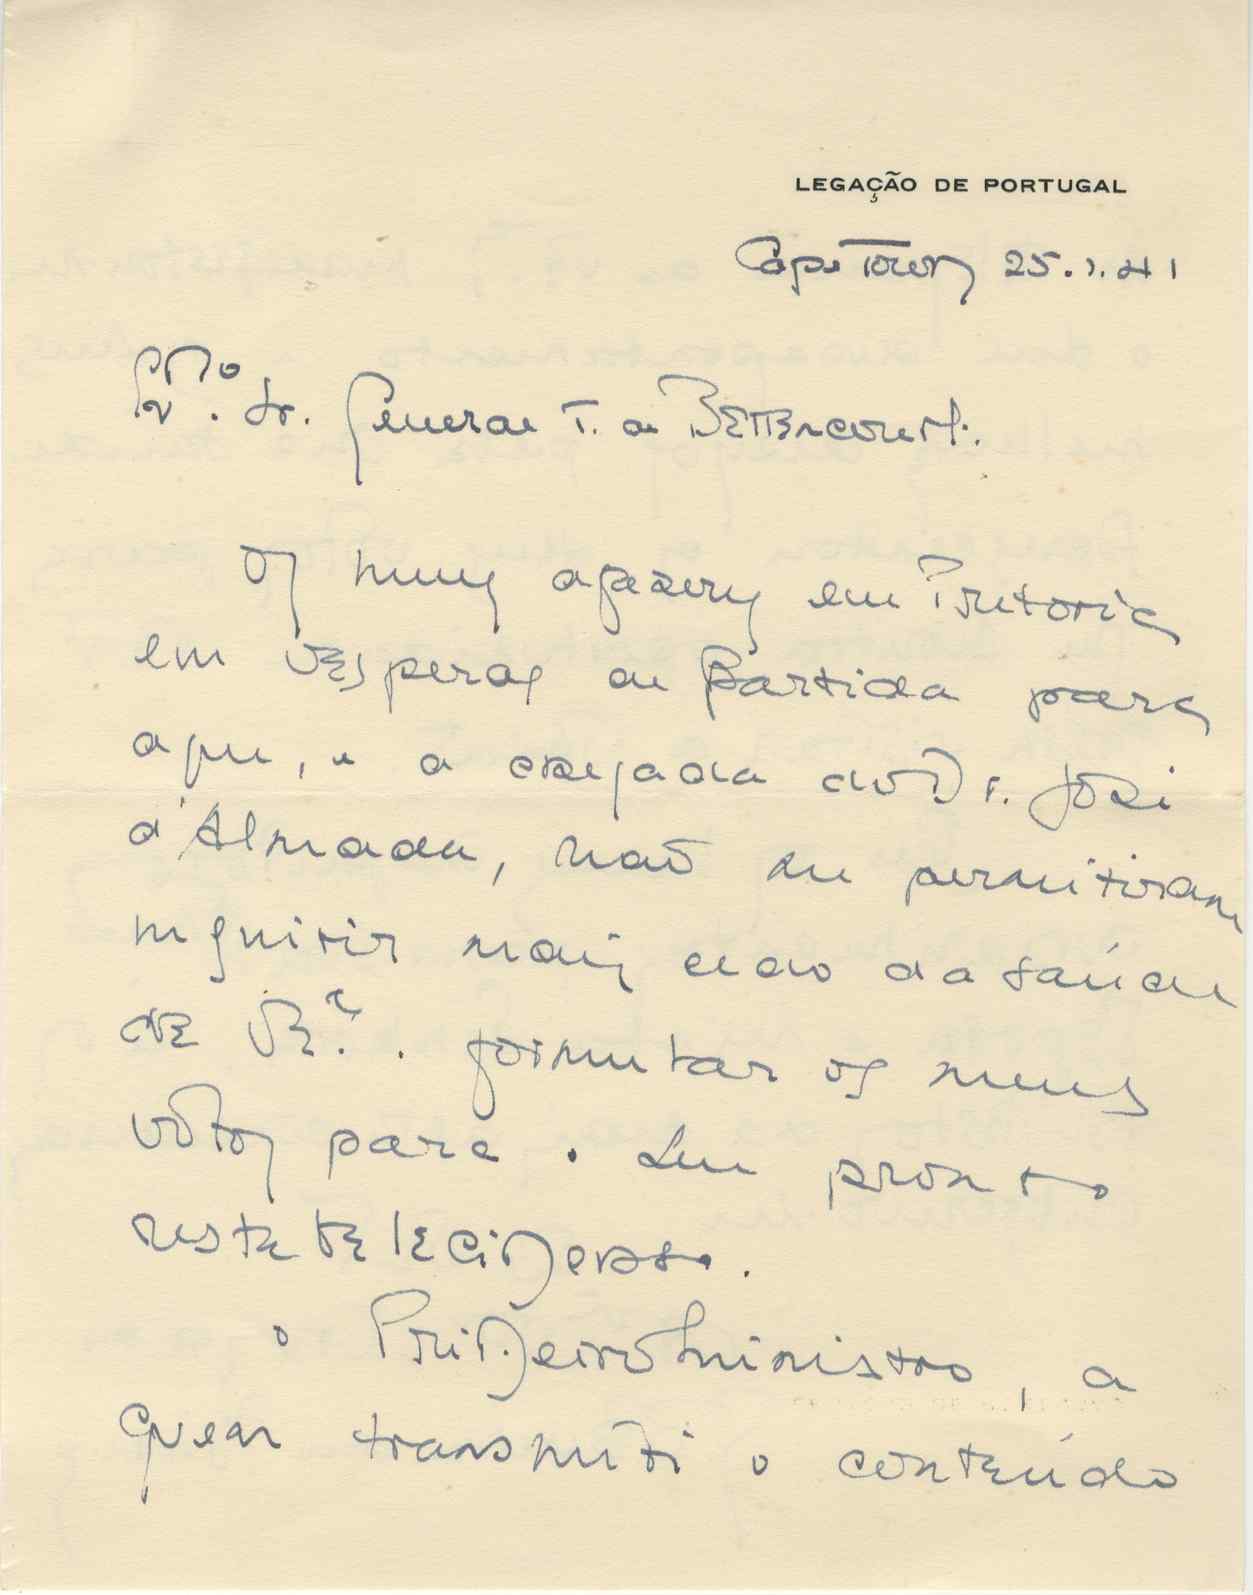 LEGAÇÃO DE PORTUGAL
Cape Town 25.1.41
Exmo. Sr. General T. de Bettencourt.
Os meus afazeres em Pretoria
em vesperas de partida para
aqui, e a chegada do Dr. José
d'Almada, não me permitiram
inquirir mais cedo da saúde
de V. Exa. formular os meus
votos para o seu pronto
restabelecimento.
O Primeiro Ministro, a
quem transmiti o conteúdo